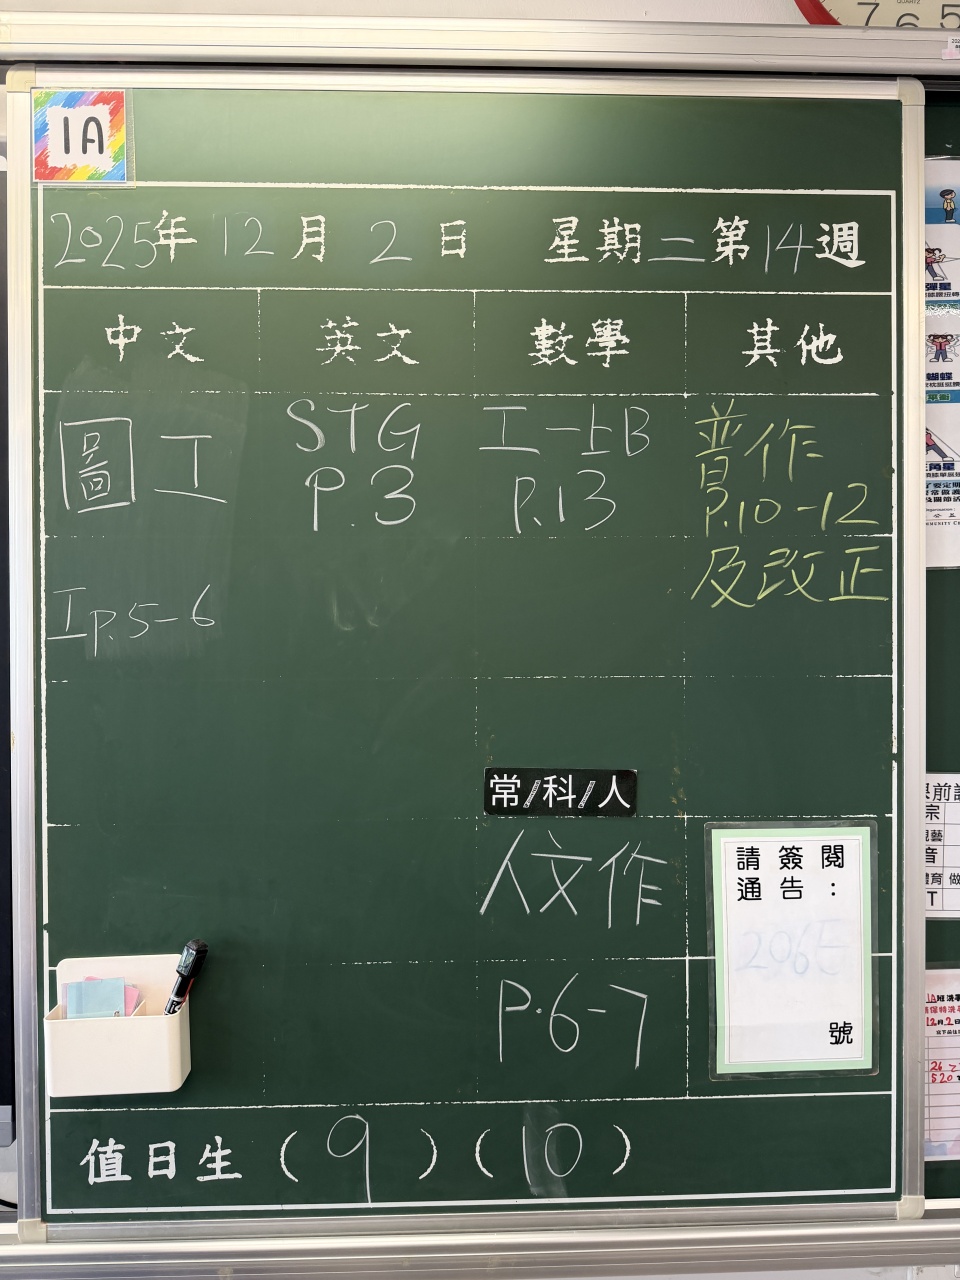 1A
2025年 12月 2日 星期二 第14週
中文 英文 數學 其他
圖工
工P.5-6
STG
P.3
工一上B
P.13
普作
P.10-12
及改正
常/科/人
人文作
P.6-7
請簽閱
通告：
號
值日生 ( 9 ) ( 10 )
7 6 5
彈星
蝴蝶
三角星
音